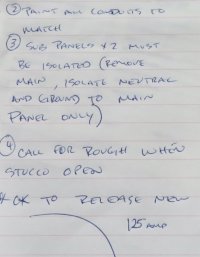 ② PAINT ALL CONDUITS TO
MATCH
③ SUB PANELS x 2 MUST
BE ISOLATED (REMOVE
MAIN, ISOLATE NEUTRAL
AND GROUND TO MAIN
PANEL ONLY)
④ CALL FOR ROUGH WHEN
STUCCO OPEN
* OK TO RELEASE NEW
125 AMP